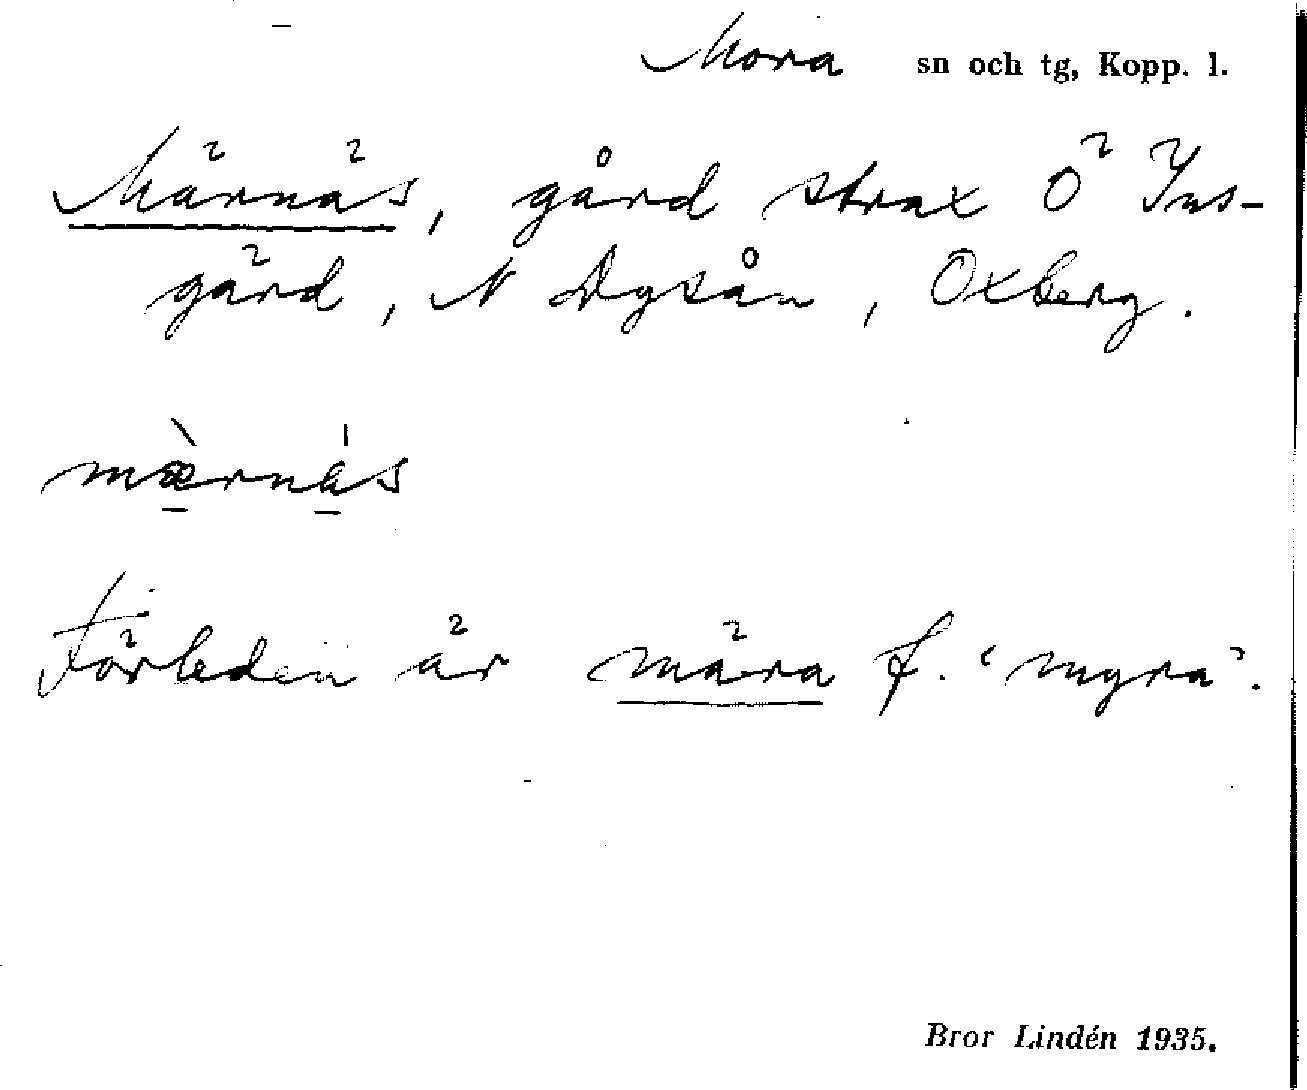 Mora sn och tg, Kopp. l.
Märnäs, gård strax Ö Ins-
gärd, N Dysån, Oxberg.
mæ̀rnä́s
Förleden är mära f. ‘myra’.
Bror Lindén 1935.